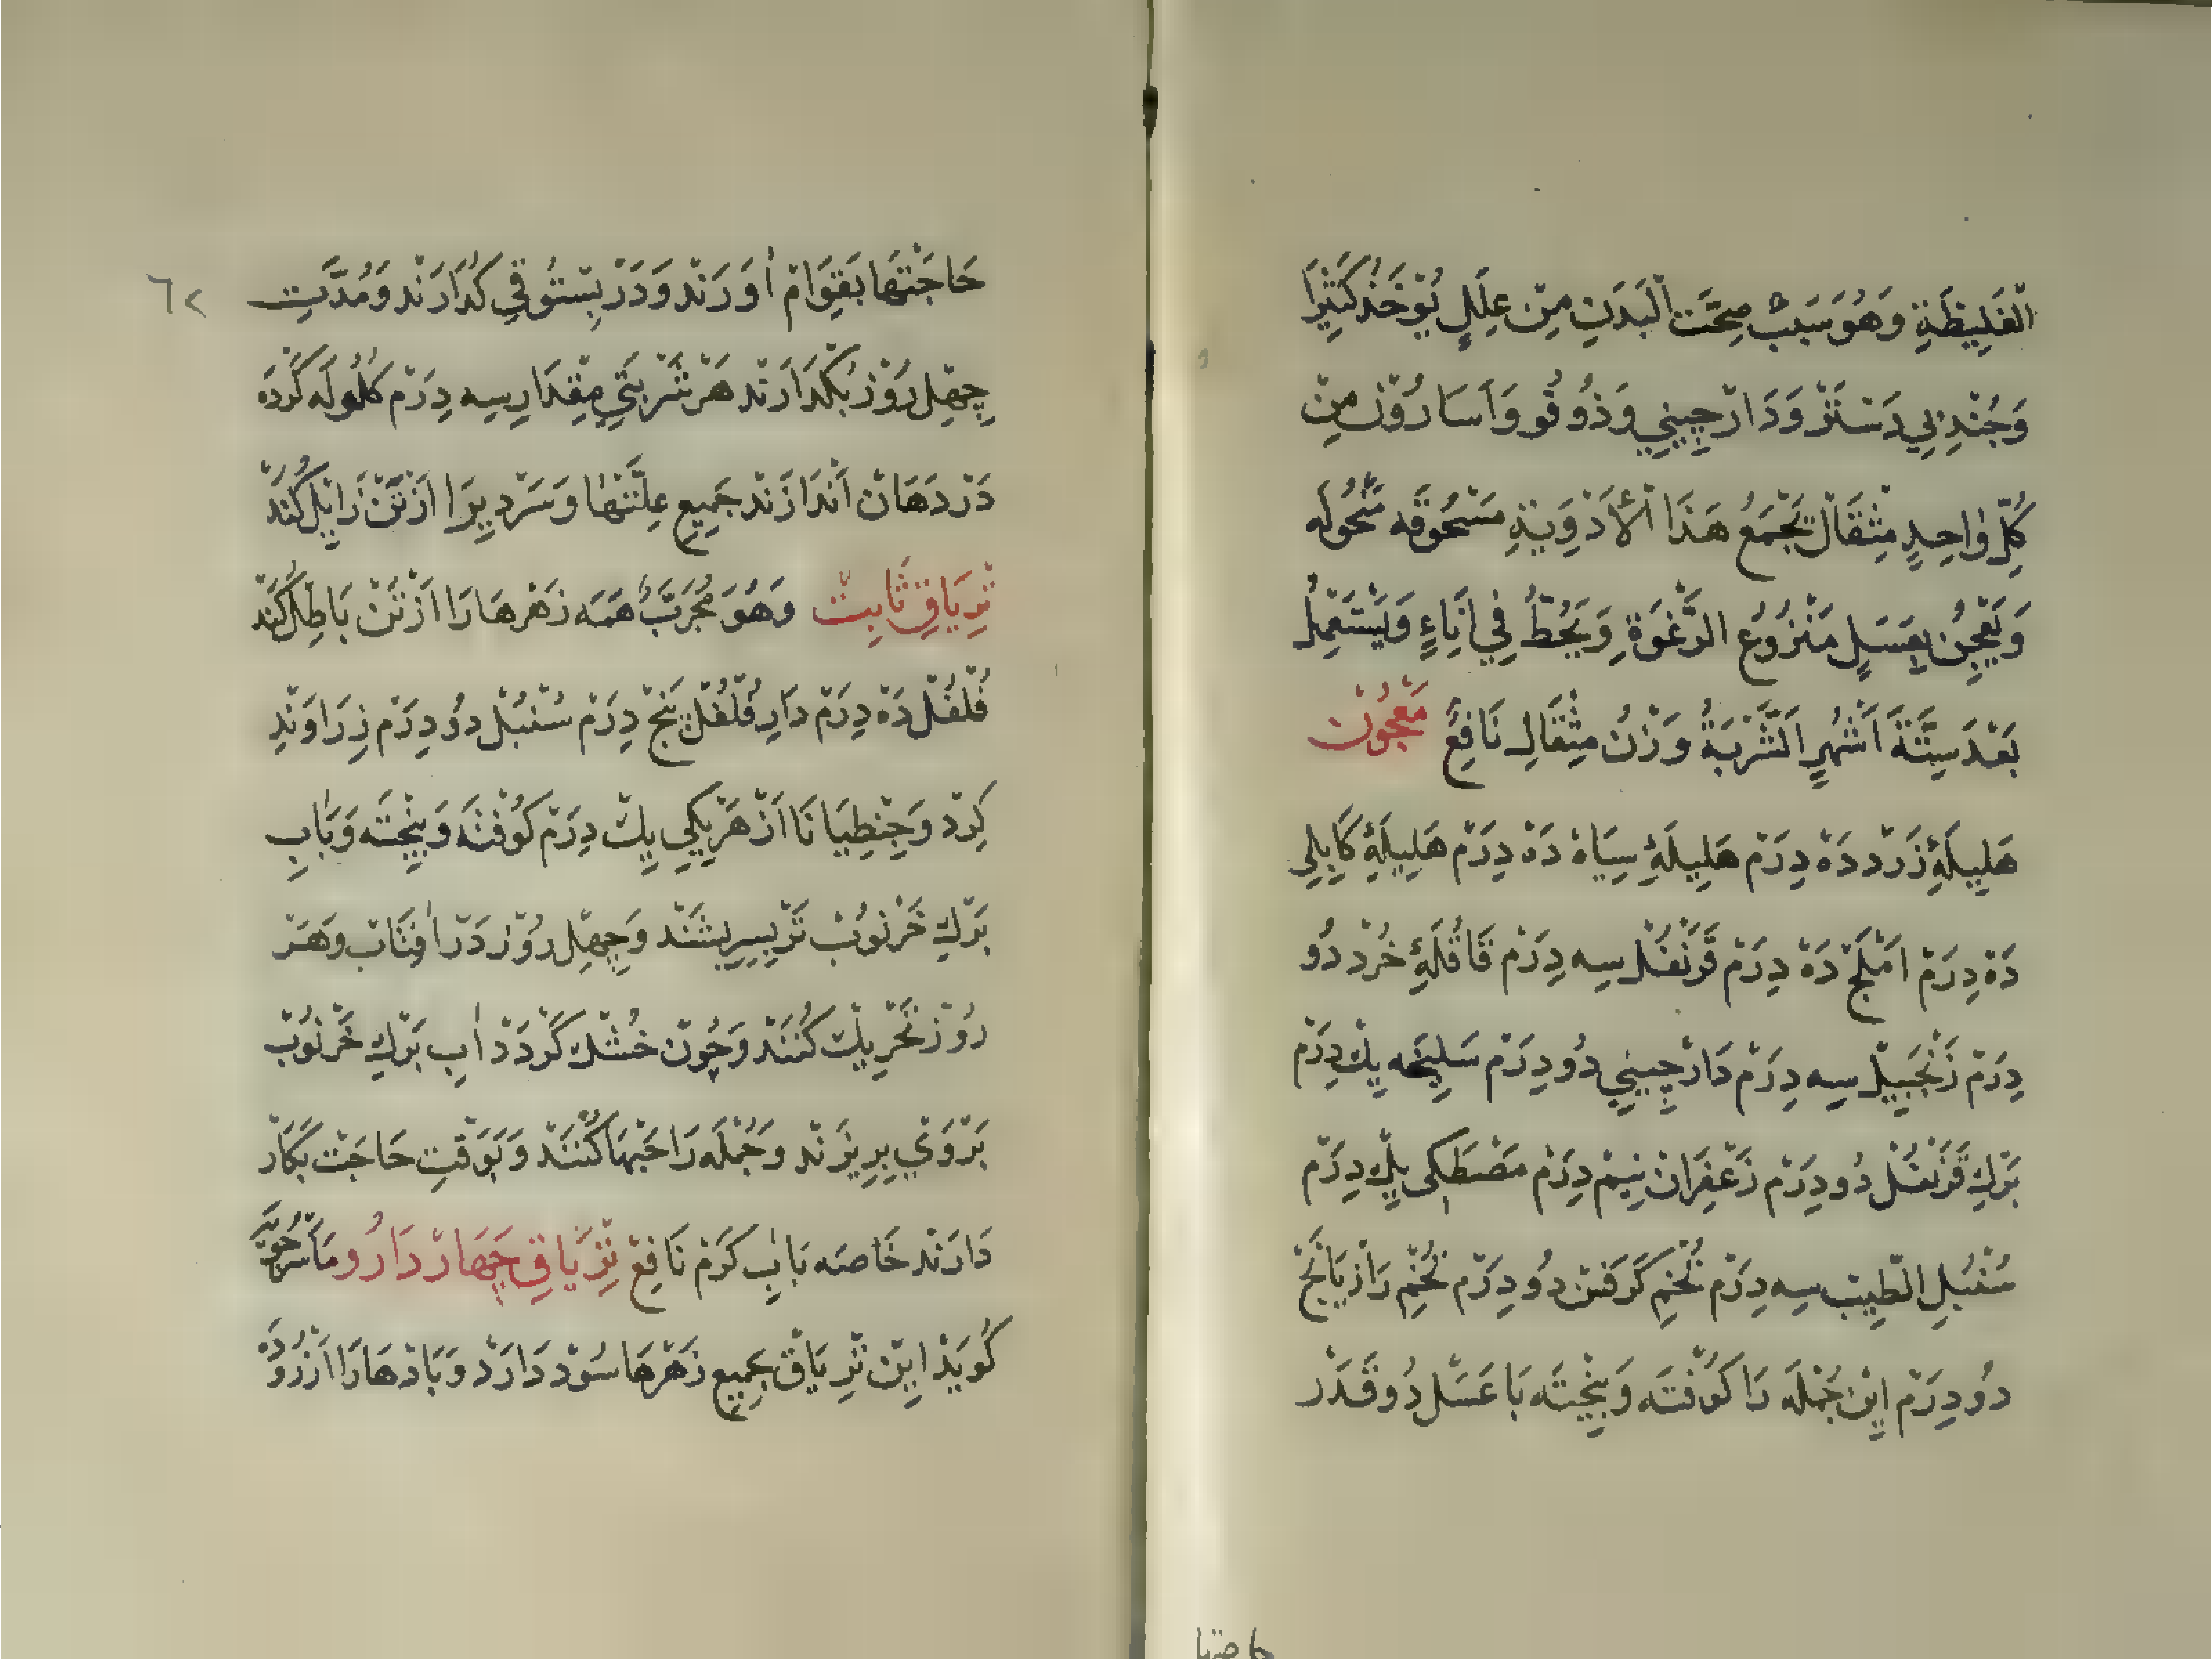 اَلْغَلِيظَةِ وَهُوَ سَبَبُ صِحَّتِ الْبَدَنِ مِنْ عِلَلٍ يُوْخَذُ كَثِيْرَا
وَجُنْدِ بِي دَسْتَرْ وَدَارْچِينِي وَدُوقُو وَاَسَارُوْنْ مِنْ
كُلِّ وٰاحِدٍ مِثْقَالْ تَجْمَعُ هَذَا اْلأَدْوِيَةِ مَسْحُوقَه مَنْحُولَه
وَيَعْجِنُ بِعَسَلٍ مَنْزُوْعُ الرَّغْوَةِ وَيَحُطُّ فِي اَنَاءٍ وَيَسْتَعْمِلُ
بَعْدَ سِتَّةَ اَشْهُرٍ اَلشَّرْبَةُ وَزْنُ مِثْقَالِ نَافِعُ مَعْجُوْنْ
هَلِيلَهٔ زَرْد دَهْ دِرَمْ هَلِيلَهٔ سِيَاهْ دَهْ دِرَمْ هَلِيلَهٔ كَابِلِى
دَهْ دِرَمْ اَمْلَجْ دَهْ دِرَمْ قَرَنْفُلْ سِه دِرَمْ قَاقُلَهٔ خُرْد دُو
دِرَمْ زَنْجَبِيلْ سِه دِرَمْ دَارْچِينِي دُو دِرَمْ سَلِيخَه يِكْ دِرَمْ
بَرْكِ قَرَنْفُلْ دُو دِرَمْ زَعْفِرَانْ نِيمْ دِرَمْ مَصْطَكِى يِكْ دِرَمْ
سُنْبُلِ الطِّيبْ سِه دِرَمْ تُخْمِ كَرَفْسْ دُو دِرَمْ تُخْمِ رَازْيَانَجْ
دُو دِرَمْ اِينْ جُمْلَه رَا كَوُفْتَه وَبِيْخْتَه بَا عَسَلْ دُو قَدَرْ
حَاجَتْهَا بَقِوَامْ اٰوَرَنْد وَدَرْ بِسْتُوقِي كُذَارَنْد وَمُدَّتِ
چِهِلْ رُوْزْ بُكْذَارَنْد هَرْ شَرْبَتِي مِقْدَارِ سِه دِرَمْ كُلُولَه كَرْدَه
دَرْ دَهَانْ اَنْدَازَنْد جَمِيعِ عِلَّتْهٰا وَسَرْدِيرَا اَزْ تَنْ زَايِلْ كُنَدْ
تِرِيَاقِ ثَابِتْ وَهُوَ مُجَرَّبُ هَمَه زَهْرهَارَا اَزْ تَنْ بَاطِلْ كُنَدْ
فُلْفُلْ دَهْ دِرَمْ دَارِ فُلْفُلْ پَنْجْ دِرَمْ سُنْبُلْ دُو دِرَمْ زِرَاوَنْدِ
كِرْد وَجِنْطِيَانَا اَزْ هَرْ يِكِي يِكْ دِرَمْ كَوُفْتَه وَبِيْخْتَه وَبَاٰبِ
بَرْكِ خَرْنوُبْ تَرْ بِسِرِيشَنْد وَچِهِلْ رُوْزْ دَرْ اٰفْتَابْ وَهَرْ
رُوْزْ تَخْرِيكْ كُنَنَدْ وَچُونْ خُشْكْ كَرْدَدْ اٰبِ بَرْكِ خَرْنوُبْ
بَرْوَيْ بِرِيزَنْد وَجُمْلَه رَا حَبْهَا كُنَنَدْ وَبَوَقْتِ حَاجَتْ بَكَارْ
دَارَنْد خَاصَه بَاٰبِ كَرْمْ نَافِعْ تِرْيَاقِ چَهَارْ دَارُو مَاسَرْجُوَيَه
كُويَدْ اِينْ تِرِيَاقْ جَمِيعِ زَهْرهَا سُوْد دَارَدْ وَبَادْهَارَا اَزْ رُوُدَه
٦٢
حاجتها